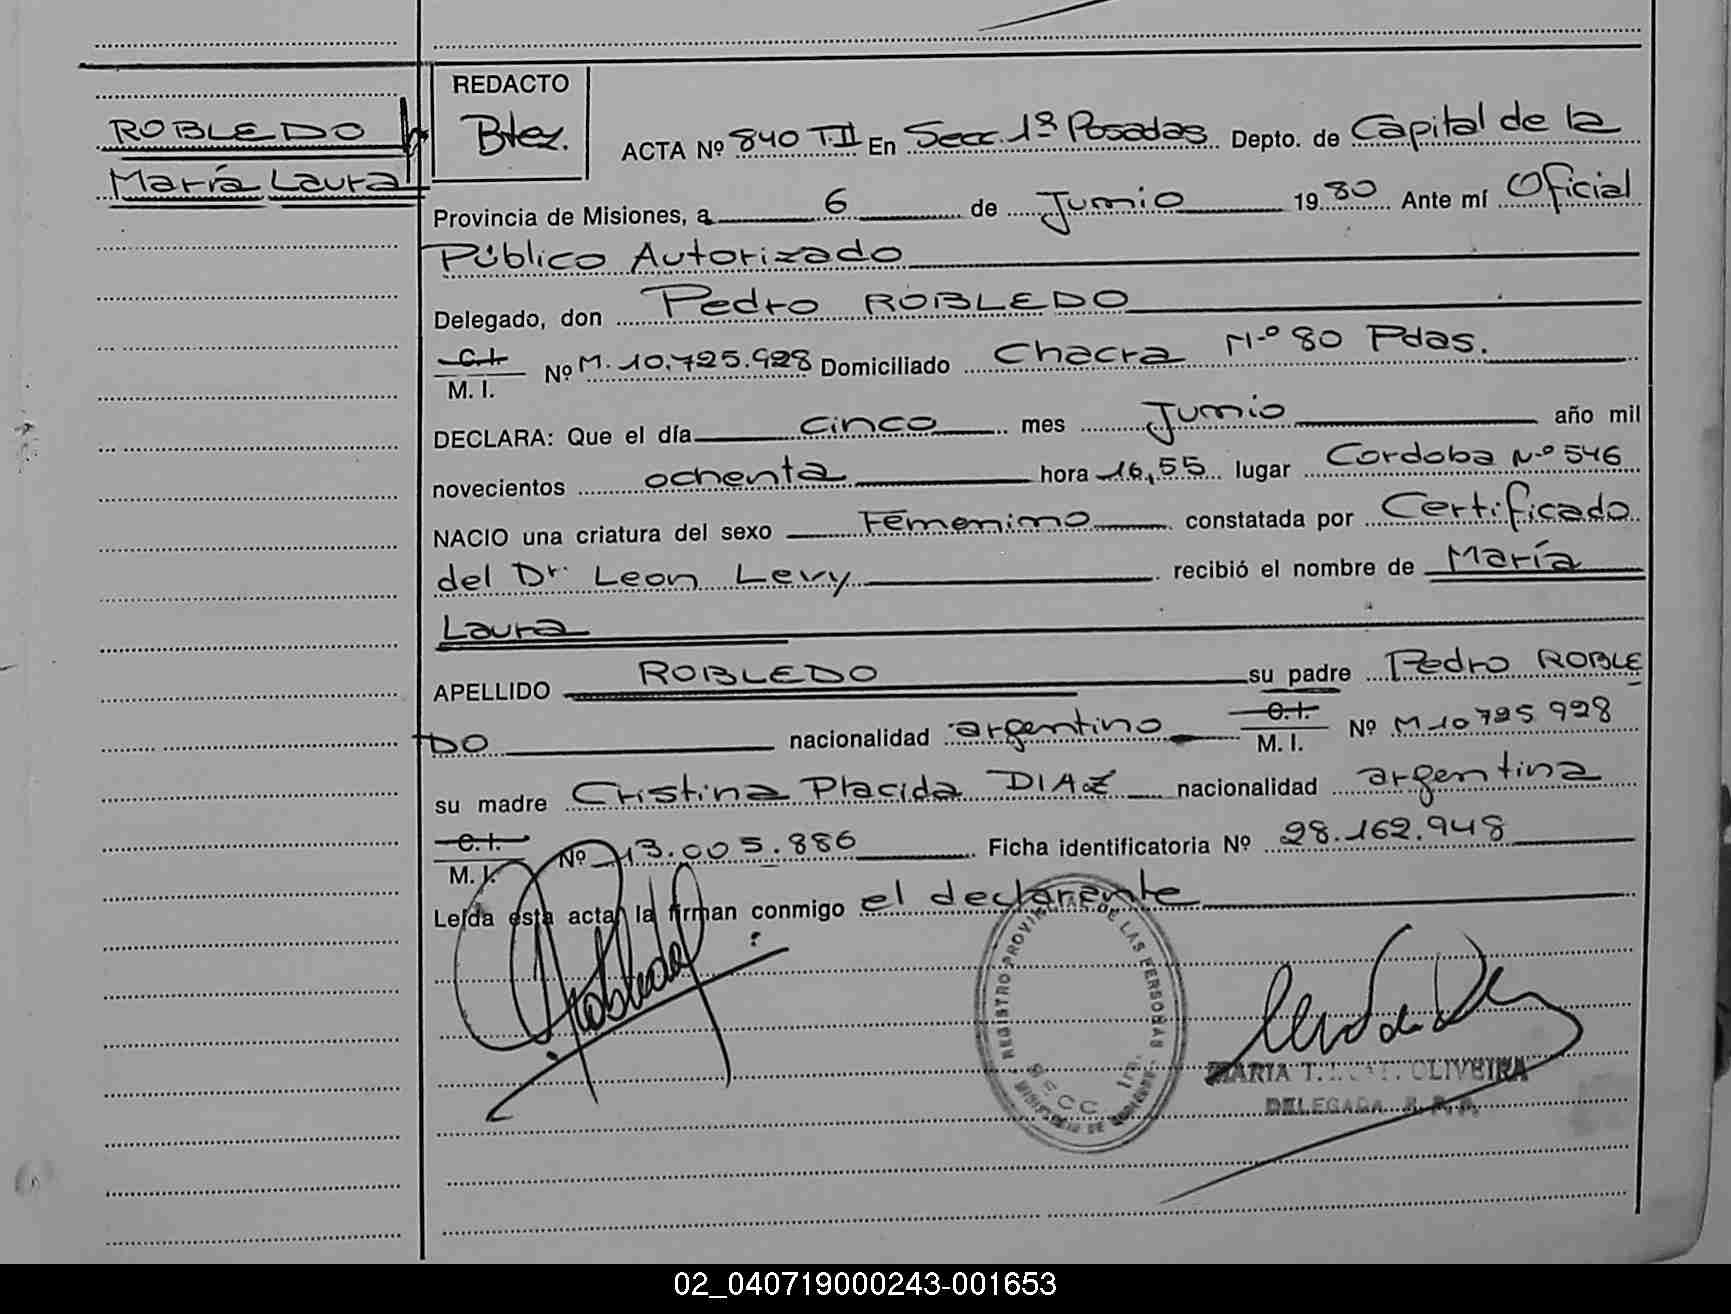 REDACTO
ROBLEDO
María Laura
ACTA Nº 840 T.II En Secc. 1ª Posadas Depto. de Capital de la
Provincia de Misiones, a 6 de Junio 1980 Ante mí Oficial
Público Autorizado
Delegado, don Pedro ROBLEDO
C.I.
M. I. Nº M. 10.725.928 Domiciliado Chacra N.º 80 Pdas.
DECLARA: Que el día cinco mes Junio año mil
novecientos ochenta hora 16,55 lugar Cordoba N.º 546
NACIO una criatura del sexo Femenino constatada por Certificado
del Dr. Leon Levy recibió el nombre de María
Laura
APELLIDO ROBLEDO su padre Pedro ROBLE
DO nacionalidad argentino C.I. M. I. Nº M 10 725 928
su madre Cristina Placida DIAZ nacionalidad argentina
C.I.
M. I. Nº 13.005.886 Ficha identificatoria Nº 28.162.948
Leída esta acta, la firman conmigo el declarante
REGISTRO PROVINCIAL DE LAS PERSONAS
SECC 1ra.
MINISTERIO DE GOBIERNO
MARIA T. OLIVEIRA
DELEGADA
02_040719000243-001653